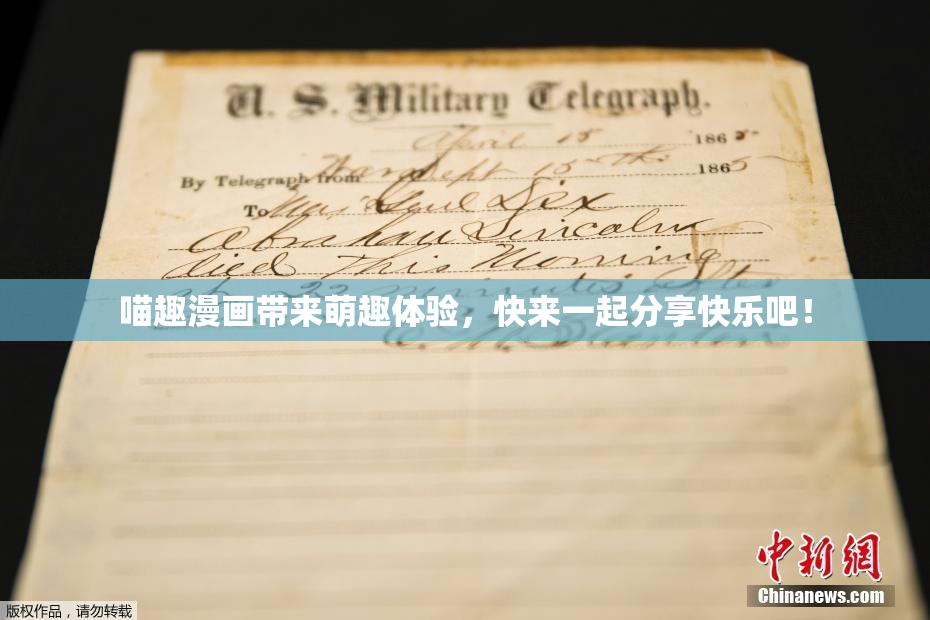 U. S. Military Telegraph.
April 15 1865
By Telegraph from War Dept 15th 1865
To Maj Genl Dix
Abraham Lincoln
died This Morning
at 22 minutes after
喵趣漫画带来萌趣体验，快来一起分享快乐吧！
E. M. Stanton
中新网
Chinanews.com
版权作品，请勿转载